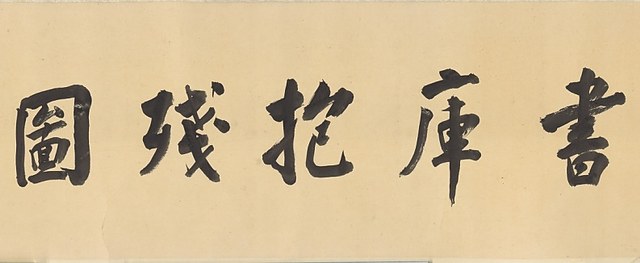 書庫抱殘圖